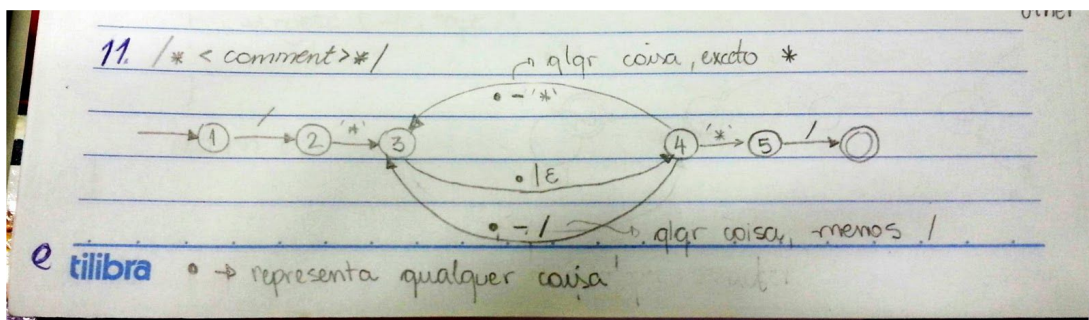 other
11. /* <comment>*/
qlqr coisa, exceto *
• - '*'
/ '*' '*' /
1 2 3 4 5
• | ε
• - / qlqr coisa, menos /
e tilibra • → representa qualquer coisa